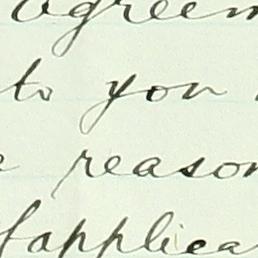 agreem
to you
e reason
applica